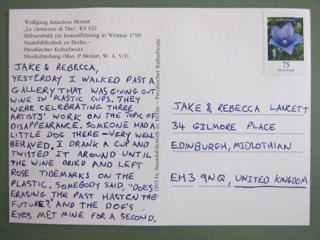 Wolfgang Amadeus Mozart
„La clemenza di Tito", KV 621
Bühnenbild zur Erstaufführung in Weimar 1799
Staatsbibliothek zu Berlin –
Preußischer Kulturbesitz
Musikabteilung (Mus. P Mozart, W. A. V/1)
JAKE & REBECCA,
YESTERDAY I WALKED PAST A
GALLERY THAT WAS GIVING OUT
WINE IN PLASTIC CUPS. THEY
WERE CELEBRATING THREE
ARTISTS' WORK ON THE TOPIC OF
DISAPPEARANCE. SOMEONE HAD A
LITTLE DOG THERE – VERY WELL
BEHAVED. I DRANK A CUP AND
TWISTED IT AROUND UNTIL
THE WINE DRIED AND LEFT
ROSE TIDEMARKS ON THE
PLASTIC. SOMEBODY SAID, "DOES
ERASING THE PAST HASTEN THE
FUTURE?" AND THE DOG'S
EYES MET MINE FOR A SECOND.
Staatsbibliothek zu Berlin – Preußischer Kulturbesitz
75
JAKE & REBECCA LANCETT
34 GILMORE PLACE
EDINBURGH, MIDLOTHIAN
EH3 9NQ, UNITED KINGDOM